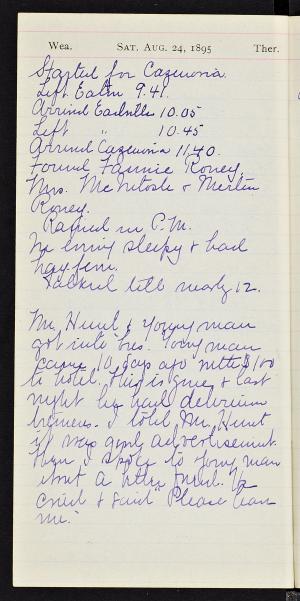 Wea. SAT. AUG. 24, 1895 Ther.
Started for Cazenovia.
Left Eaton 9.41.
Arrived Earlville 10.05
Left " 10.45
Arrived Cazenovia 11.40.
Found Fannie Roney,
Mrs. McIntosh & Merlin
Roney.
Rained in P.M.
sleepy & had
hayfever.
Talked till nearly 12.
Mr. Hunt & young man
got into bus. Young man
came 10 days ago with $100
to hotel. This is gone & last
night he had delirium
tremens. I told Mr. Hunt
it was good advertisement.
Then I spoke to young man
about a better
cried & said "Please leave
me."